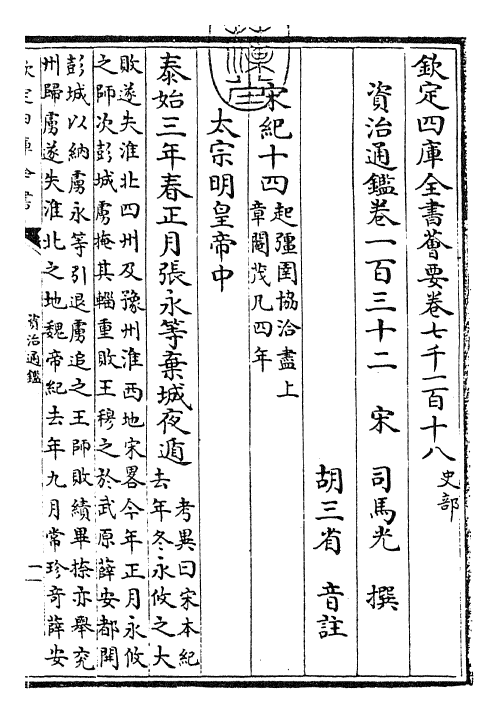 欽定四庫全書薈要卷七千一百十八 史部
資治通鑑卷一百三十二 宋 司馬光 撰
胡三省 音註
宋紀十四 起彊圉協洽盡上
章閹茂凡四年
太宗明皇帝中
泰始三年春正月張永等棄城夜遁 考異曰宋本紀
去年冬永攸之大
敗遂失淮北四州及豫州淮西地宋畧今年正月永攸
之師次彭城虜掩其輜重敗王穆之於武原薛安都開
彭城以納虜永等引退虜追之王師敗績畢捺亦舉兖
州歸虜遂失淮北之地魏帝紀去年九月常珍奇薛安
欽定四庫全書
資治通鑑
一